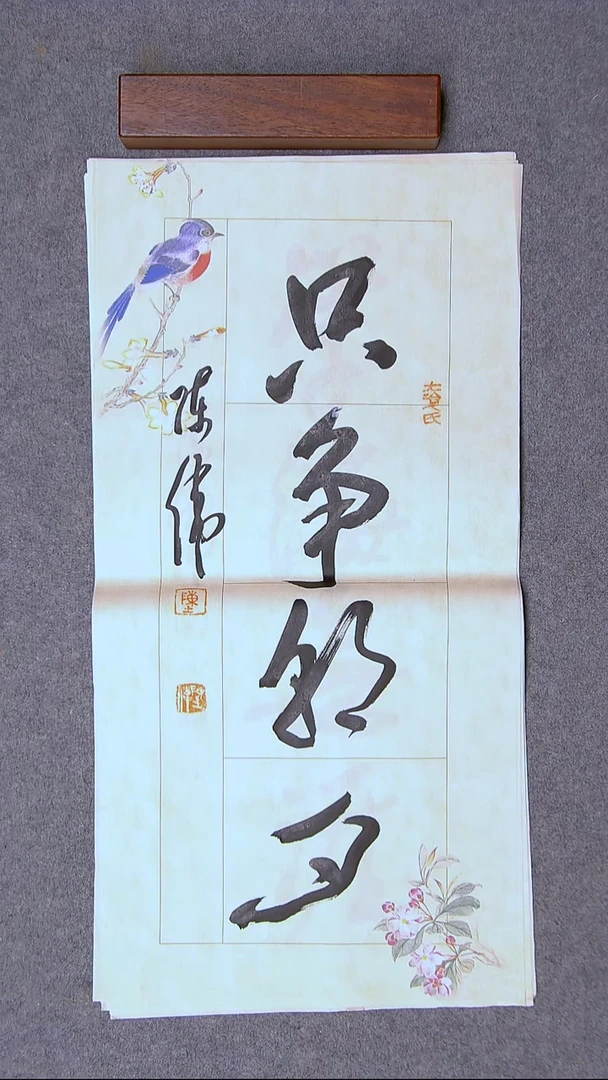 只争朝夕
陈伟